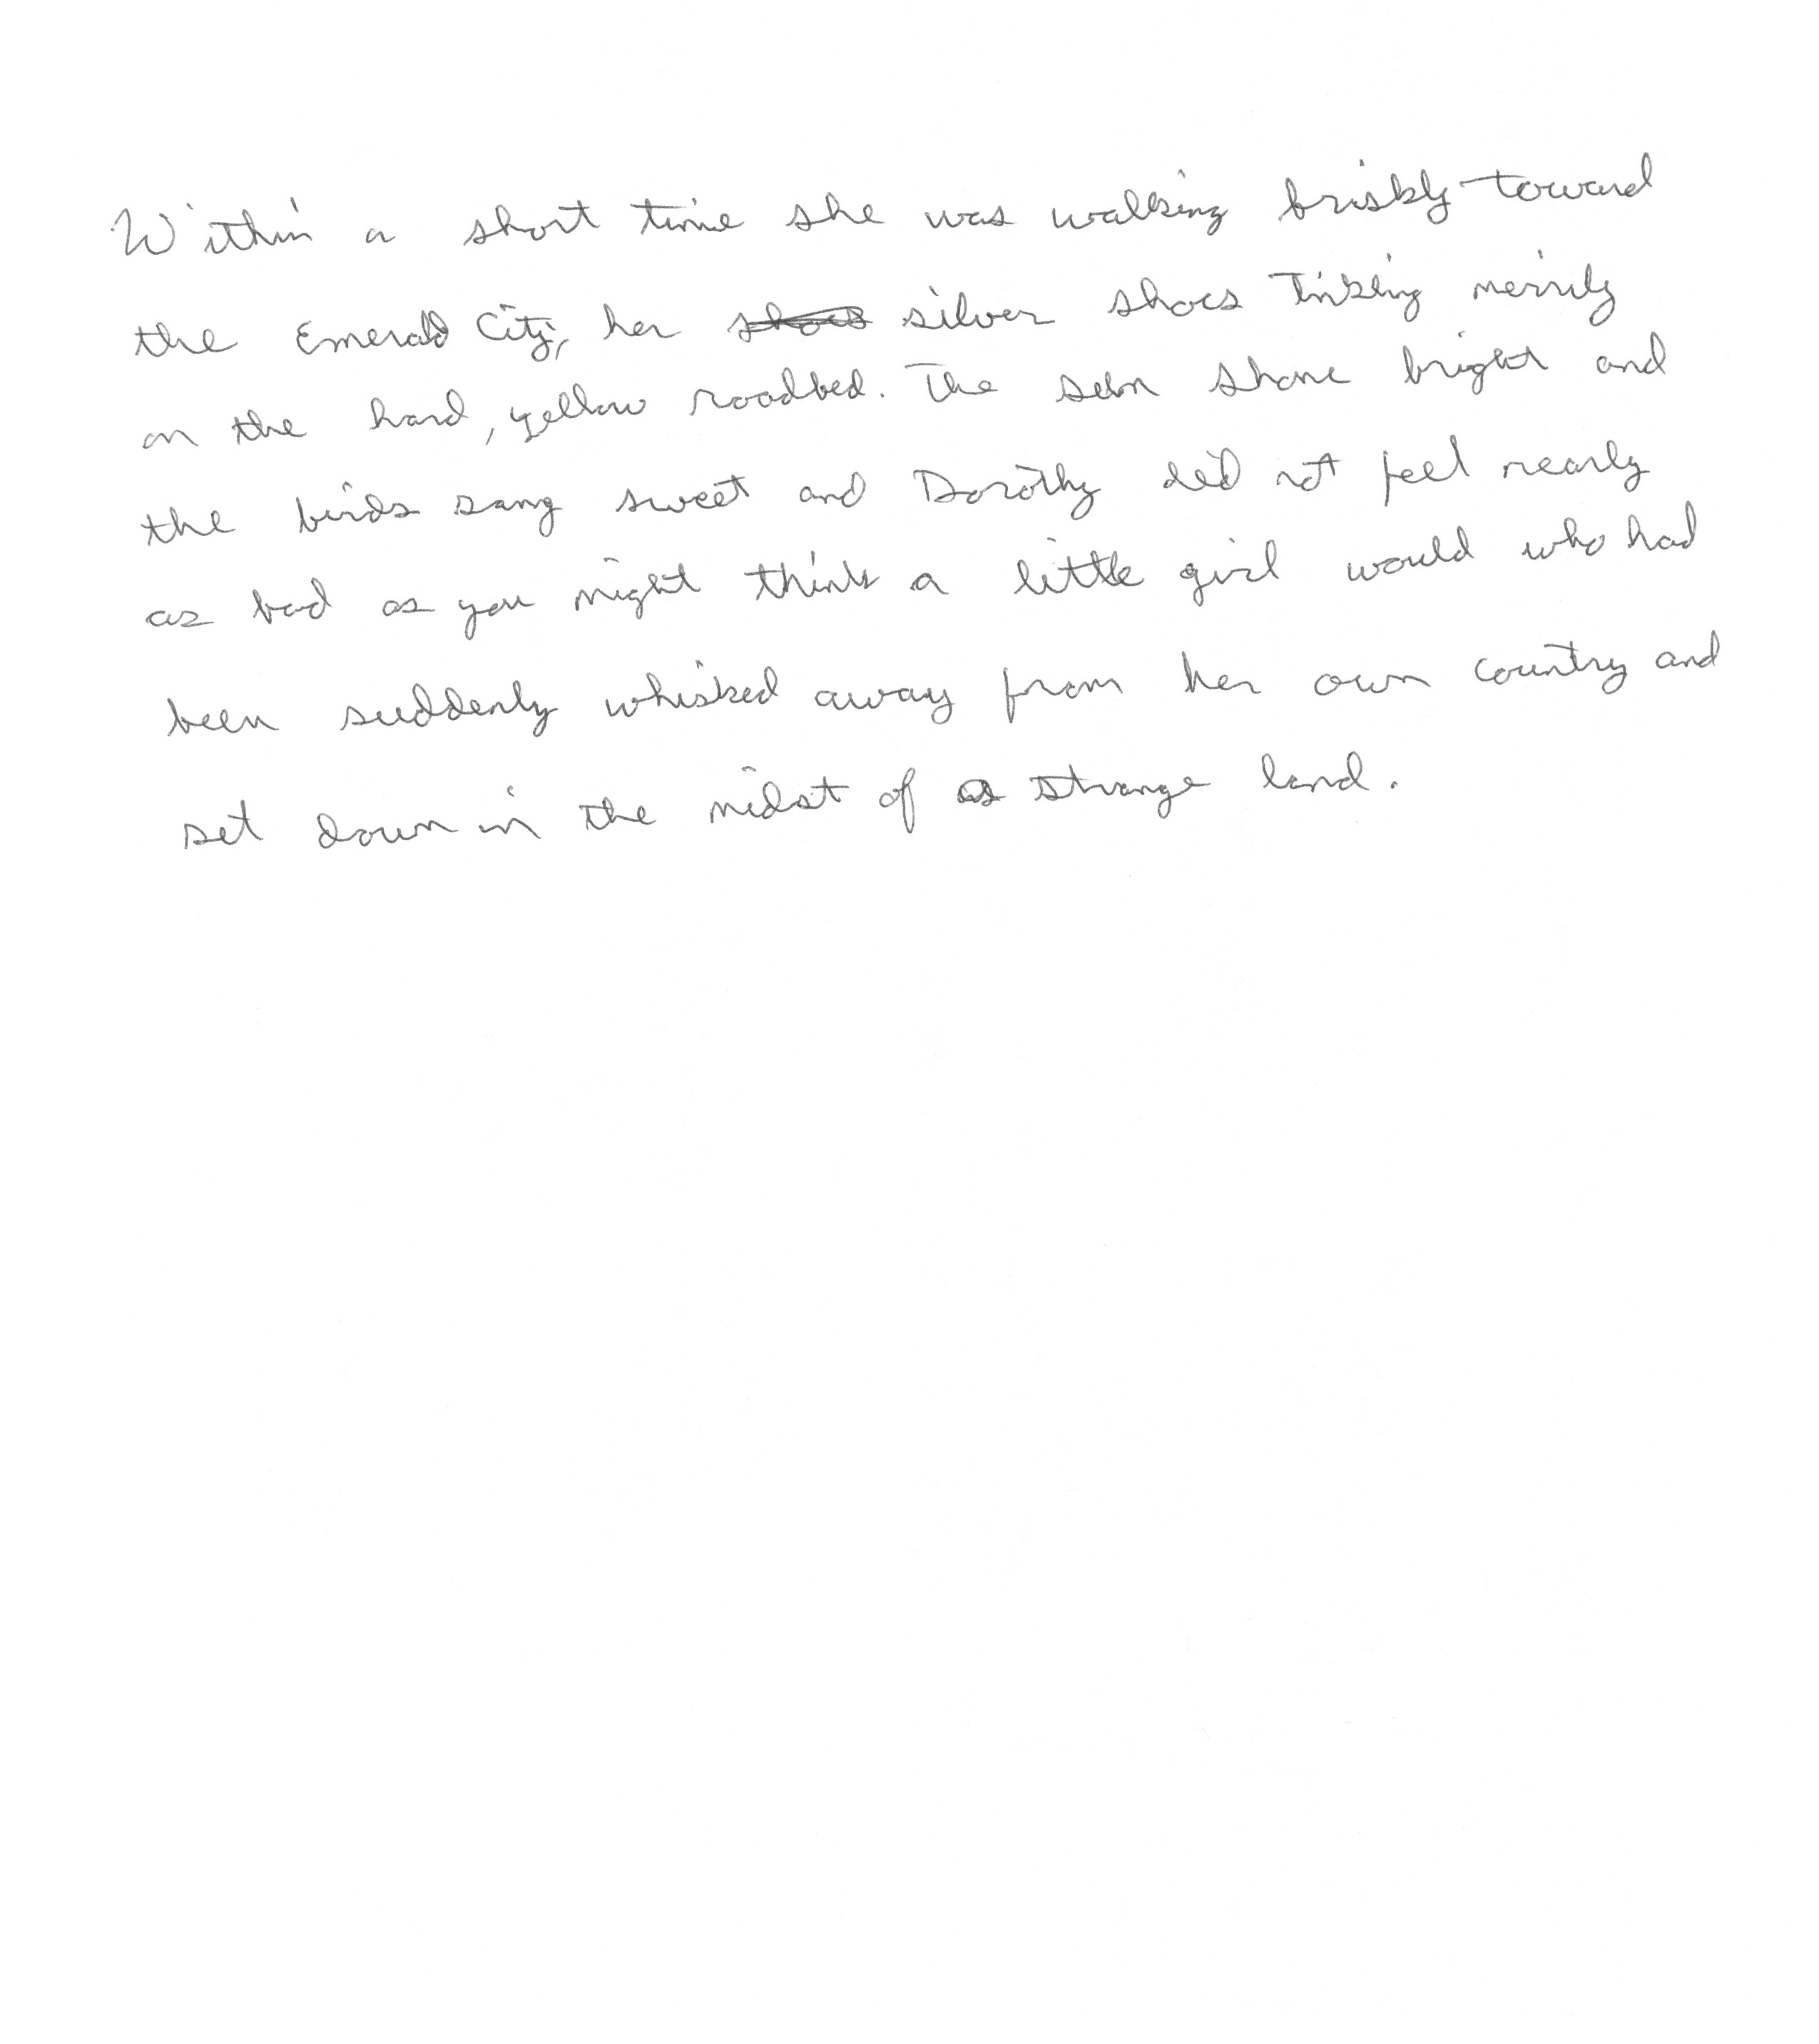 Within a short time she was walking briskly toward
the Emerald City, her shoes silver shoes Tinkling merrily
on the hard, yellow roadbed. The sun shone bright and
the birds sang sweet and Dorothy did not feel nearly
as bad as you might think a little girl would who had
been suddenly whisked away from her own country and
set down in the midst of a strange land.